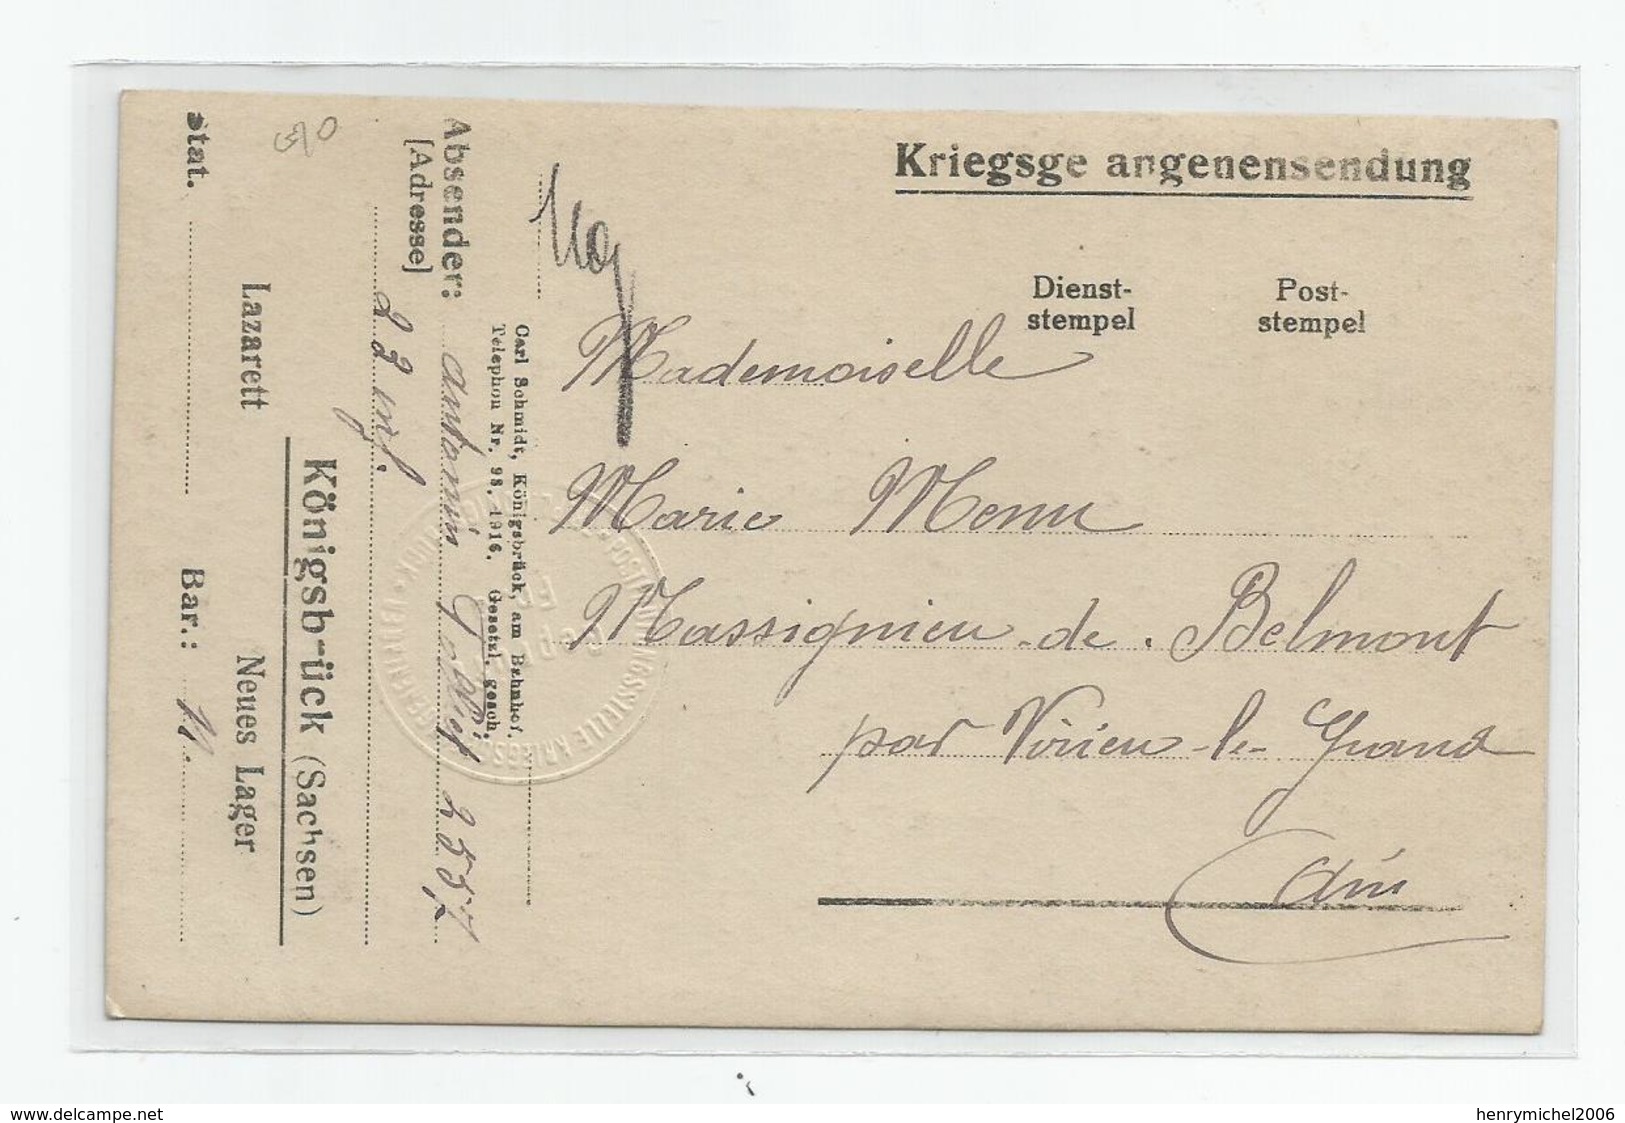 Kriegsge angenensendung
Dienst-
stempel
Post-
stempel
Mademoiselle
Marie Menu
Massignieu-de-Belmont
par Virieu-le-Grand
Ain
Carl Schmidt, Königsbrück, am Bahnhof.
Telephon Nr. 98. 1916. Gesetzl. gesch.
Absender: Antonin 2557
[Adresse]
22 inf.
Königsbrück (Sachsen)
Lazarett Neues Lager
Stat. Bar.:
www.delcampe.net
henrymichel2006